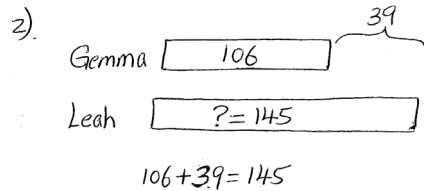 2).
39
Gemma 106
Leah ?= 145
106+39=145